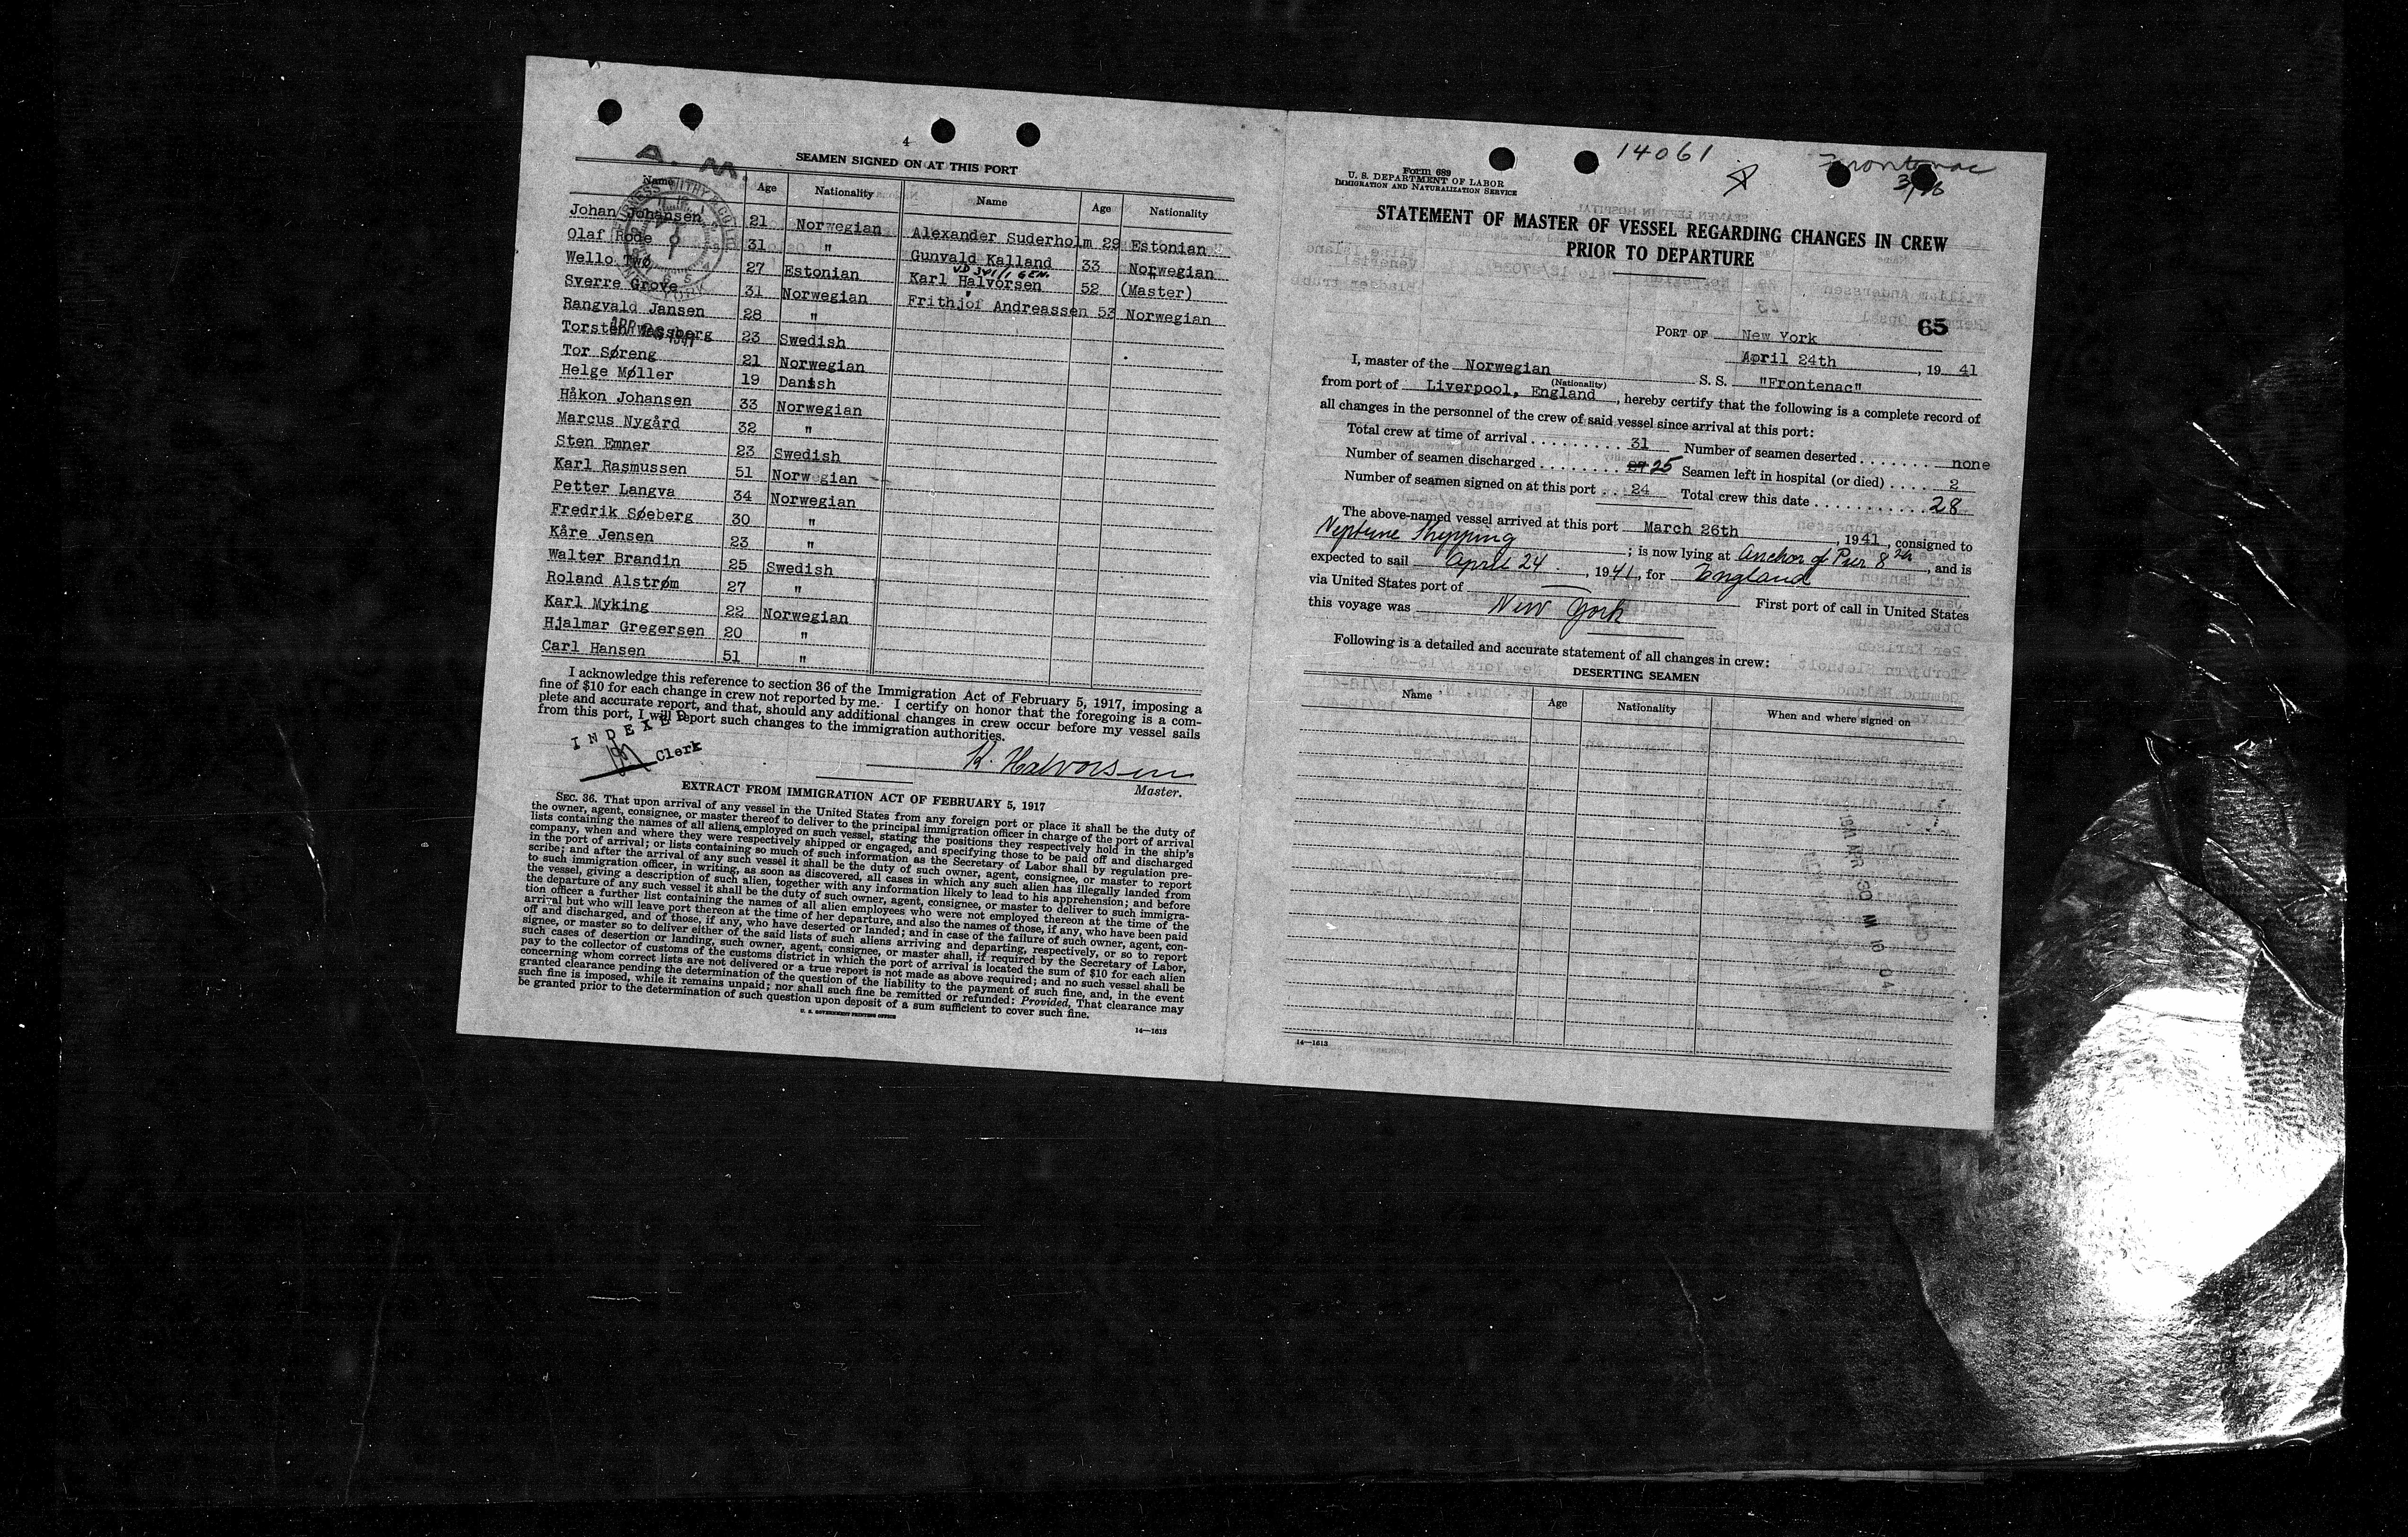 4
SEAMEN SIGNED ON AT THIS PORT
A. M.
Name Age Nationality Name Age Nationality
Johan Johansen 21 Norwegian Alexander Suderholm 29 Estonian
Olaf Rode 31 " Gunvald Kalland 33 Norwegian
Wello Two 27 Estonian Karl Halvorsen 52 (Master)
Sverre Grove 31 Norwegian Frithjof Andreassen 53 Norwegian
Rangvald Jansen 28 "
Torsten Wassberg 23 Swedish
Tor Søreng 21 Norwegian
Helge Møller 19 Danish
Håkon Johansen 33 Norwegian
Marcus Nygård 32 "
Sten Emner 23 Swedish
Karl Rasmussen 51 Norwegian
Petter Langva 34 Norwegian
Fredrik Søeberg 30 "
Kåre Jensen 23 "
Walter Brandin 25 Swedish
Roland Alstrøm 27 "
Karl Myking 22 Norwegian
Hjalmar Gregersen 20 "
Carl Hansen 51 "
I acknowledge this reference to section 36 of the Immigration Act of February 5, 1917, imposing a
fine of $10 for each change in crew not reported by me. I certify on honor that the foregoing is a com-
plete and accurate report, and that, should any additional changes in crew occur before my vessel sails
from this port, I will report such changes to the immigration authorities.
INDEXED
Clerk
K. Halvorsen
Master.
EXTRACT FROM IMMIGRATION ACT OF FEBRUARY 5, 1917
SEC. 36. That upon arrival of any vessel in the United States from any foreign port or place it shall be the duty of
the owner, agent, consignee, or master thereof to deliver to the principal immigration officer in charge of the port of arrival
lists containing the names of all aliens employed on such vessel, stating the positions they respectively hold in the ship's
company, when and where they were respectively shipped or engaged, and specifying those to be paid off and discharged
in the port of arrival; or lists containing so much of such information as the Secretary of Labor shall by regulation pre-
scribe; and after the arrival of any such vessel it shall be the duty of such owner, agent, consignee, or master to report
to such immigration officer, in writing, as soon as discovered, all cases in which any such alien has illegally landed from
the vessel, giving a description of such alien, together with any information likely to lead to his apprehension; and before
the departure of any such vessel it shall be the duty of such owner, agent, consignee, or master to deliver to such immigra-
tion officer a further list containing the names of all alien employees who were not employed thereon at the time of the
arrival but who will leave port thereon at the time of her departure, and also the names of those, if any, who have been paid
off and discharged, and of those, if any, who have deserted or landed; and in case of the failure of such owner, agent, con-
signee, or master so to deliver either of the said lists of such aliens arriving and departing, respectively, or so to report
such cases of desertion or landing, such owner, agent, consignee, or master shall, if required by the Secretary of Labor,
pay to the collector of customs of the customs district in which the port of arrival is located the sum of $10 for each alien
concerning whom correct lists are not delivered or a true report is not made as above required; and no such vessel shall be
granted clearance pending the determination of the question of the liability to the payment of such fine, and, in the event
such fine is imposed, while it remains unpaid; nor shall such fine be remitted or refunded: Provided, That clearance may
be granted prior to the determination of such question upon deposit of a sum sufficient to cover such fine.
U. S. GOVERNMENT PRINTING OFFICE
14—1613
14061
Frontenac
3/26
Form 689
U. S. DEPARTMENT OF LABOR
IMMIGRATION AND NATURALIZATION SERVICE
STATEMENT OF MASTER OF VESSEL REGARDING CHANGES IN CREW
PRIOR TO DEPARTURE
65
PORT OF New York
April 24th, 1941
I, master of the Norwegian S. S. "Frontenac"
(Nationality)
from port of Liverpool, England, hereby certify that the following is a complete record of
all changes in the personnel of the crew of said vessel since arrival at this port:
Total crew at time of arrival 31 Number of seamen deserted none
Number of seamen discharged 25 Seamen left in hospital (or died) 2
Number of seamen signed on at this port 24 Total crew this date 28
The above-named vessel arrived at this port March 26th, 1941, consigned to
Neptune Shipping; is now lying at Anchor of Pier 8, and is
expected to sail April 24, 1941, for England
via United States port of First port of call in United States
this voyage was New York
Following is a detailed and accurate statement of all changes in crew:
DESERTING SEAMEN
Name Age Nationality When and where signed on
1941 APR 30 AM 10 04
14—1613